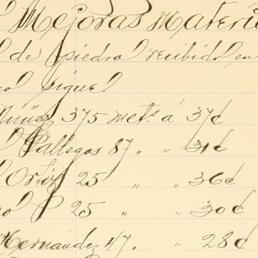 Mejoras Materi
l de piedra recibido en
ol Miguel
Núñez 375 mets á 37¢
l Gallegos 87 " " 31¢
l Ortiz 25 " " 36¢
ol 25 " " 30¢
Hernández 47 " " 28¢